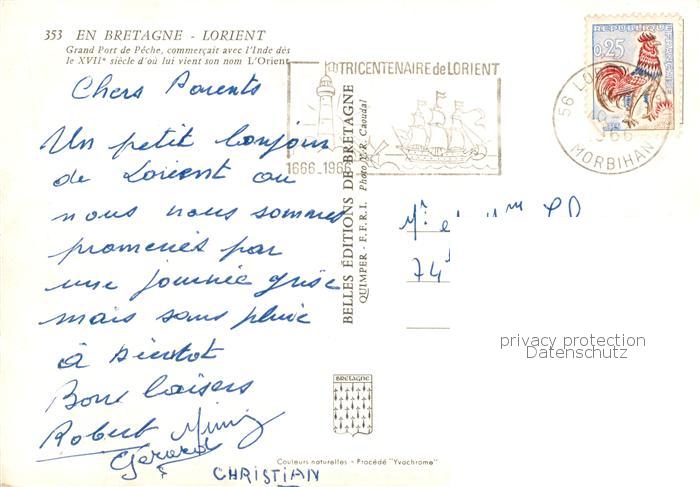 353 EN BRETAGNE - LORIENT
Grand Port de Pêche, commerçait avec l'Inde dès
le XVIIe siècle d'où lui vient son nom L'Orient
Chers Parents
Un petit bonjour
de Lorient ou
nous nous sommes
promenés par
une journée grise
mais sans pluie
à Bientot
Bons baisers
Robert Mimi
Gérard
CHRISTIAN
TRICENTENAIRE de LORIENT
1666-1966
BELLES ÉDITIONS DE BRETAGNE
QUIMPER - E.F.R.I. Photo J.-R. Caoudal
REPUBLIQUE FRANÇAISE
0,25
56
1966
MORBIHAN
74
privacy protection
Datenschutz
BRETAGNE
Couleurs naturelles - Procédé "Yvachrome"